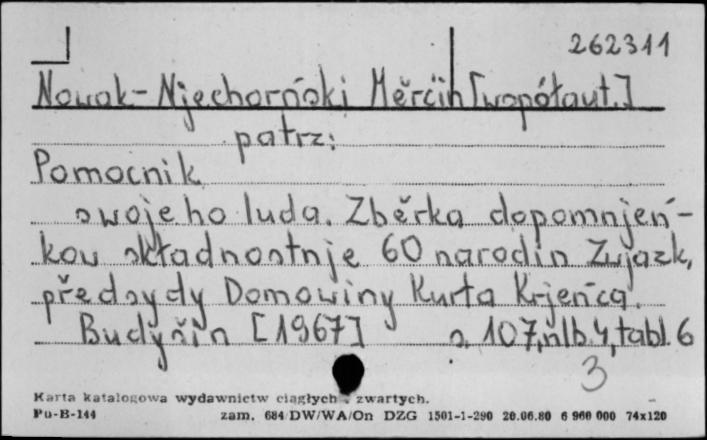 262311
Nowak-Njechorński Měrćin [współaut.]
patrz:
Pomocnik
swojeho luda. Zběrka dopomnjeń-
kow składnostnje 60 narodin Zwjazk,
předsydy Domowiny Kurta Krjeńca.
Budyšin [1967] s. 107, nlb. 4, tabl. 6
3
Karta katalogowa wydawnictw ciągłych - zwartych.
Pu-B-144 zam. 684/DW/WA/On DZG 1501-1-290 20.06.80 6 960 000 74x120